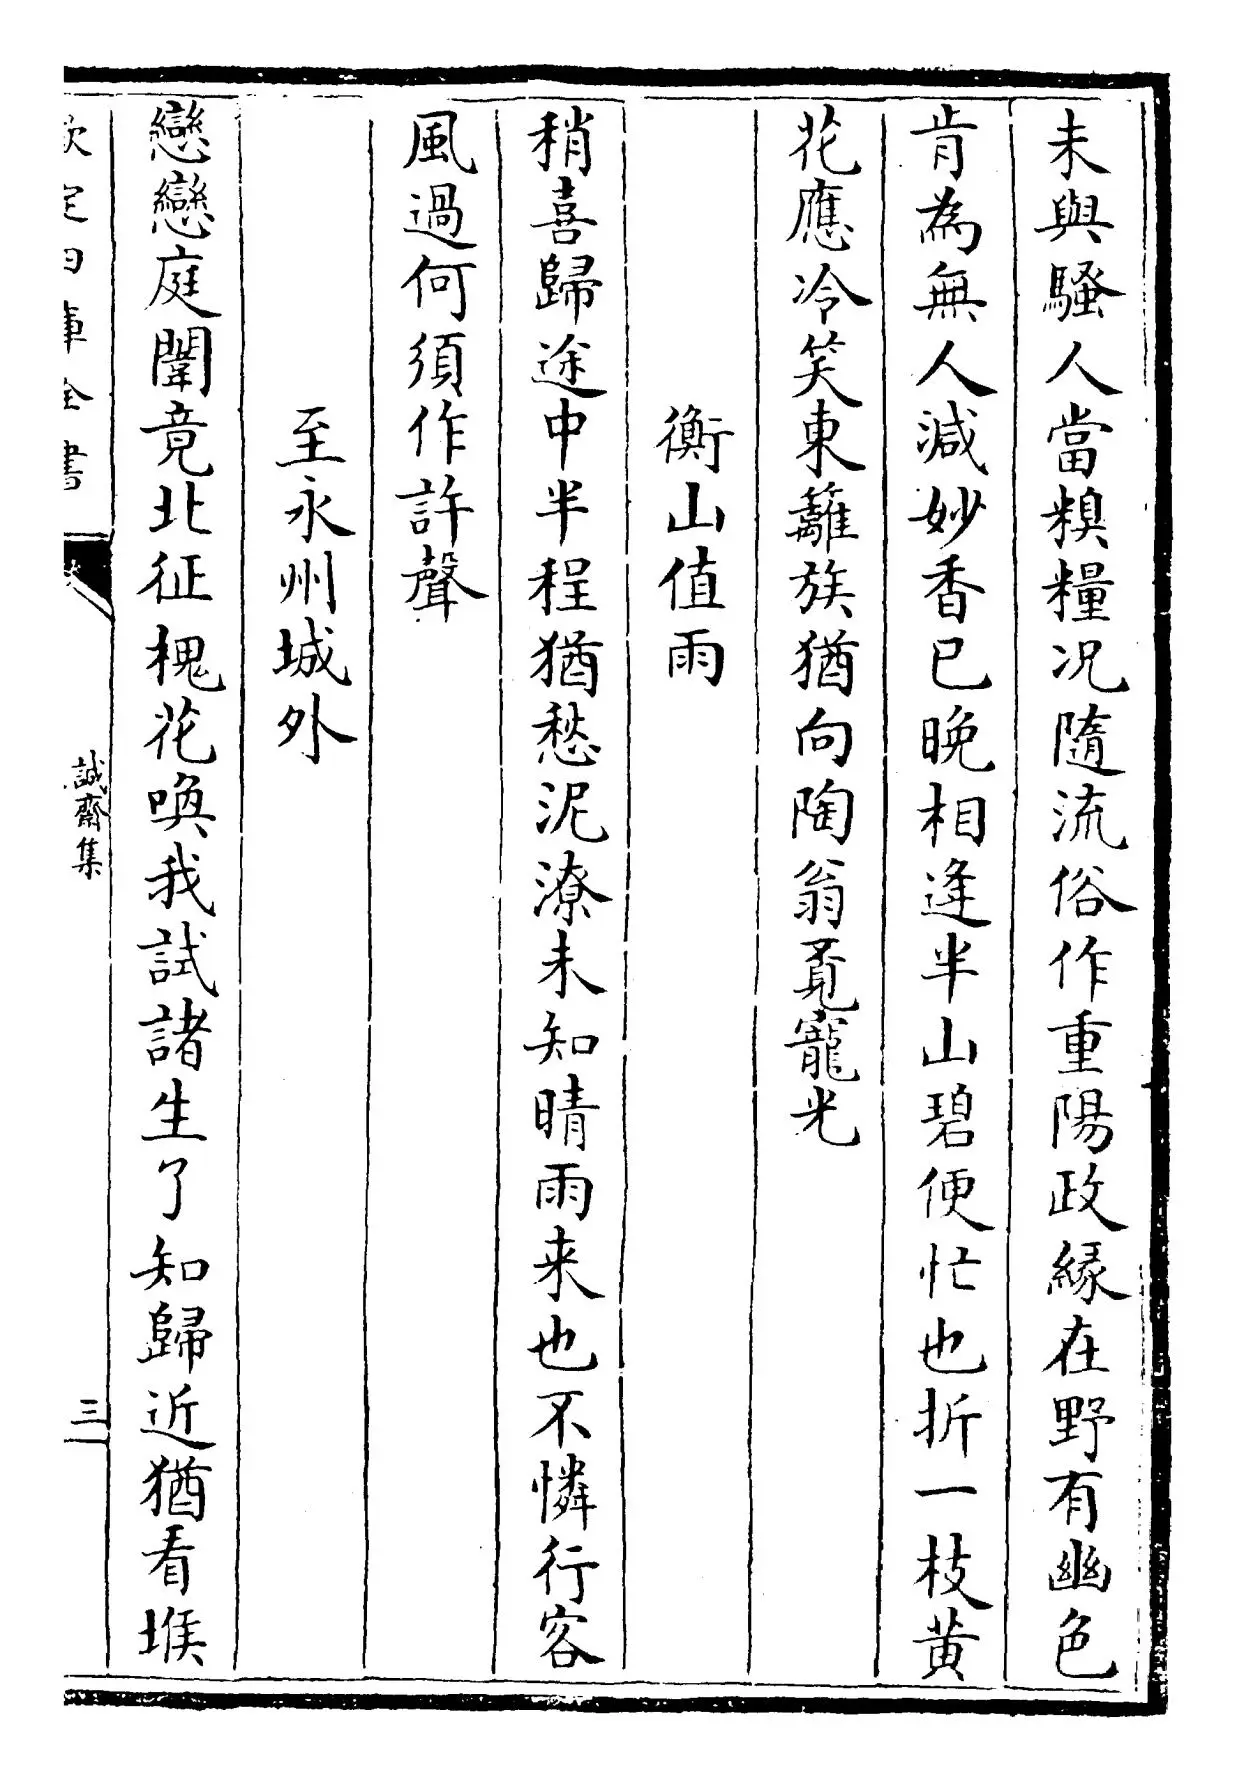 未與騷人當糗糧况隨流俗作重陽政縁在野有幽色
肯為無人減妙香已晚相逢半山碧便忙也折一枝黄
花應冷笑東籬族猶向陶翁覔寵光
衡山值雨
稍喜歸途中半程猶愁泥潦未知晴雨来也不憐行客
風過何須作許聲
至永州城外
戀戀庭闈竟北征槐花喚我試諸生了知歸近猶看堠
欽定四庫全書
誠齋集
三